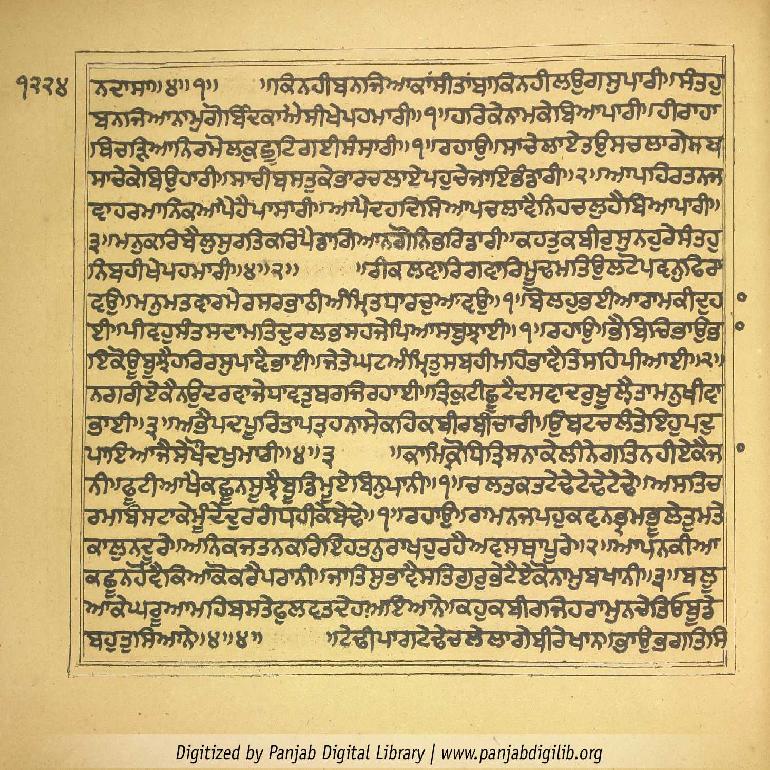 ੧੨੨੪
ਨਦਾਸਾ॥੪॥੧॥ ॥ਕਿਨਹੀਬਨਜਿਆਕਾਂਸੀਤਾਂਬਾਕਿਨਹੀਲਉਗਸੁਪਾਰੀ॥ਸੰਤਹੁ
ਬਨਜਿਆਨਾਮੁਗੋਬਿੰਦਕਾਐਸੀਖੇਪਹਮਾਰੀ॥੧॥ਹਰਿਕੇਨਾਮਕੇਬਿਆਪਾਰੀ॥ਹੀਰਾਹਾ
ਥਿਚੜਿਆਨਿਰਮੋਲਕੁਛੂਟਿਗਈਸੰਸਾਰੀ॥੧॥ਰਹਾਉ॥ਸਾਚੇਲਾਏਤਉਸਚਲਾਗੇਸਚ
ਸਾਚੇਕੇਬਿਉਹਾਰੀ॥ਸਾਚੀਬਸਤੁਕੇਭਾਰਚਲਾਏਪਹੁਚੇਜਾਇਭੰਡਾਰੀ॥੨॥ਆਪਹਿਰਤਨਜ
ਵਾਹਰਮਾਨਿਕਆਪੈਹੈਪਾਸਾਰੀ॥ਆਪੈਦਹਦਿਸਿਆਪਚਲਾਵੈਨਿਹਚਲੁਹੈਬਿਆਪਾਰੀ॥
੩॥ਮਨੁਕਰਿਬੈਲੁਸੁਰਤਿਕਰਿਪੈਡਾਗਿਆਨਗੋਨਿਭਰਿਡਾਰੀ॥ਕਹਤੁਕਬੀਰੁਸੁਨਹੁਰੇਸੰਤਹੁ
ਨਿਬਹੀਖੇਪਹਮਾਰੀ॥੪॥੨॥ ॥ਰੀਕਲਵਾਰਿਗਵਾਰਿਮੂਢਮਤਿਉਲਟੋਪਵਨੁਫਿਰਾ
ਵਉ॥ਮਨੁਮਤਵਾਰਮੇਰਸਰਭਾਠੀਅੰਮ੍ਰਿਤਧਾਰਚੁਆਵਉ॥੧॥ਬੋਲਹੁਭਈਆਰਾਮਕੀਦੁਹ
ਈ॥ਪੀਵਹੁਸੰਤਸਦਾਮਤਿਦੁਰਲਭਸਹਜੇਪਿਆਸਬੁਝਾਈ॥੧॥ਰਹਾਉ॥ਭੈਬਿਚਿਭਾਉਭ
ਾਇਕੋਊਬੂਝੈਹਰਿਰਸੁਪਾਵੈਭਾਈ॥ਜੇਤੇਘਟਅੰਮ੍ਰਿਤੁਸਬਹੀਮਹਿਭਾਵੈਤਿਸਹਿਪੀਆਈ॥੨॥
ਨਗਰੀਏਕੈਨਉਦਰਵਾਜੇਧਾਵਤੁਬਰਜਿਰਹਾਈ॥ਤ੍ਰਿਕੁਟੀਛੂਟੈਦਸਵਾਦਰੁਖੂਲੈਤਾਮਨੁਖੀਵਾ
ਭਾਈ॥੩॥ਅਭੈਪਦਪੂਰਿਤਾਪਤਹਨਾਸੇਕਹਿਕਬੀਰਬੀਚਾਰੀ॥ਉਬਟਚਲੰਤੇਇਹੁਪਦੁ
ਪਾਇਆਜੈਸੇਖੋਂਦਖੁਮਾਰੀ॥੪॥੩ ॥ਕਾਮਿਕ੍ਰੋਧਿਤ੍ਰਿਸਨਾਕੇਲੀਨੇਗਤਿਨਹੀਏਕੈਜ
ਨੀ॥ਫੂਟੀਆਖੈਕਛੂਨਸੂਝੈਬੂਡਿਮੂਏਬਿਨੁਪਾਨੀ॥੧॥ਚਲਤਕਤਟੇਢੇਟੇਢੇਟੇਢੇ॥ਅਸਤਿਚ
ਰਮਬਿਸਟਾਕੇਮੂੰਦੇਦੁਰਗੰਧਹੀਕੇਬੇਢੇ॥੧॥ਰਹਾਉ॥ਰਾਮਨਜਪਹੁਕਵਨਭ੍ਰਮਭੂਲੇਤੁਮਤੇ
ਕਾਲੁਨਦੂਰੇ॥ਅਨਿਕਜਤਨਕਰਿਇਹਤਨੁਰਾਖਹੁਰਹੈਅਵਸਥਾਪੂਰੇ॥੨॥ਆਪਨਕੀਆ
ਕਛੂਨਹੋਵੈਕਿਆਕੋਕਰੈਪਰਾਨੀ॥ਜਾਤਿਸੁਭਾਵੈਸਤਿਗੁਰੁਭੇਟੈਏਕੋਨਾਮੁਬਖਾਨੀ॥੩॥ਬਲੂ
ਆਕੇਘਰੂਆਮਹਿਬਸਤੇਫੁਲਵਤਦੇਹਅਇਆਨੇ॥ਕਹੁਕਬੀਰਜਿਹਰਾਮੁਨਚੇਤਿਓਬੂਡੇ
ਬਹੁਤੁਸਿਆਨੇ॥੪॥੪॥ ॥ਟੇਢੀਪਾਗਟੇਢੇਚਲੇਲਾਗੇਬੀਰੇਖਾਨ॥ਭਾਉਭਗਤਿਸਿ
Digitized by Panjab Digital Library | www.panjabdigilib.org